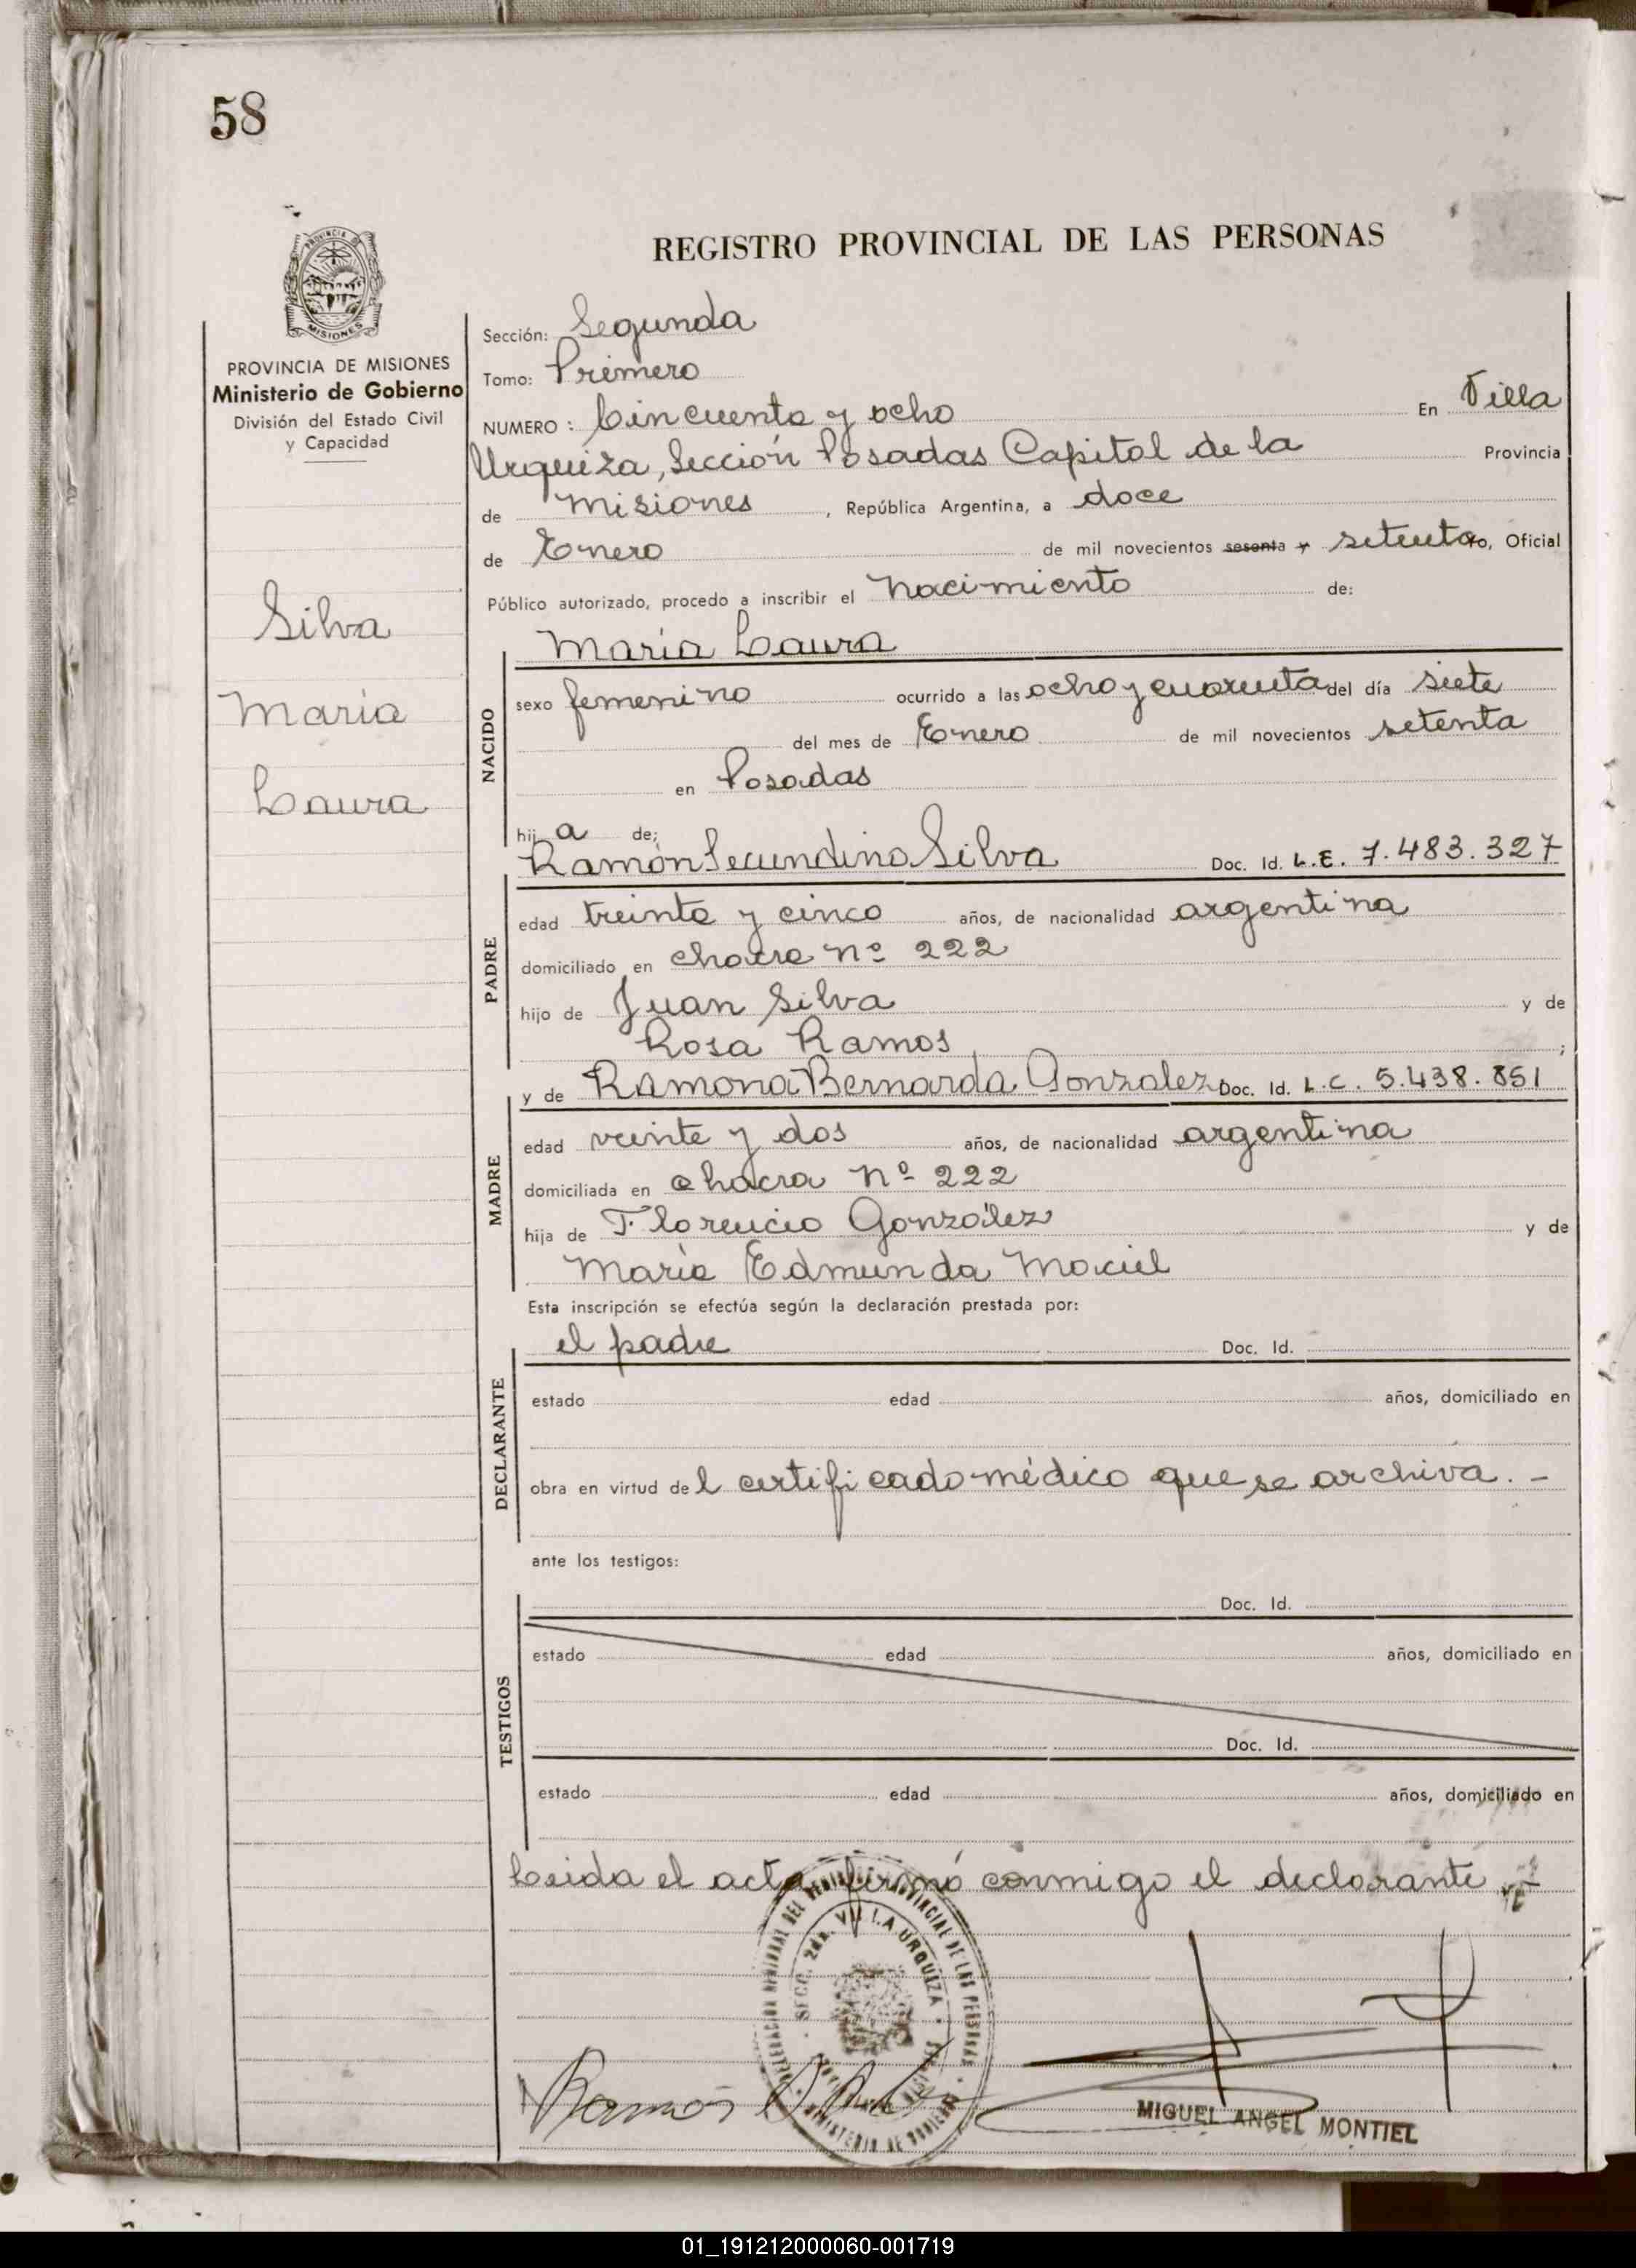 58
REGISTRO PROVINCIAL DE LAS PERSONAS
PROVINCIA DE MISIONES
PROVINCIA DE MISIONES
Ministerio de Gobierno
División del Estado Civil
y Capacidad
Silva
María
Laura
Sección: Segunda
Tomo: Primero
NUMERO: Cincuenta y ocho En Villa
Urquiza, Sección Posadas Capital de la Provincia
de Misiones, República Argentina, a doce
de Enero de mil novecientos sesenta y setenta, Oficial
Público autorizado, procedo a inscribir el Nacimiento de:
María Laura
NACIDO
sexo femenino ocurrido a las ocho y cuarenta del día siete
del mes de Enero de mil novecientos setenta
en Posadas
hija de;
Ramón Secundino Silva Doc. Id. L.E. 7.483.327
PADRE
edad treinta y cinco años, de nacionalidad argentina
domiciliado en chacra nº 222
hijo de Juan Silva y de
Rosa Ramos;
y de Ramona Bernarda Gonzalez Doc. Id. L.C. 5.438.851
MADRE
edad veinte y dos años, de nacionalidad argentina
domiciliada en chacra nº 222
hija de Florencio González y de
María Edmunda Maciel
Esta inscripción se efectúa según la declaración prestada por:
el padre Doc. Id.
DECLARANTE
estado edad años, domiciliado en
obra en virtud del certificado médico que se archiva. -
ante los testigos:
Doc. Id.
TESTIGOS
estado edad años, domiciliado en
Doc. Id.
estado edad años, domiciliado en
Leida el acta firmó conmigo el declarante
SECC. 2da. VILLA URQUIZA
Ramón
MIGUEL ANGEL MONTIEL
01_191212000060-001719